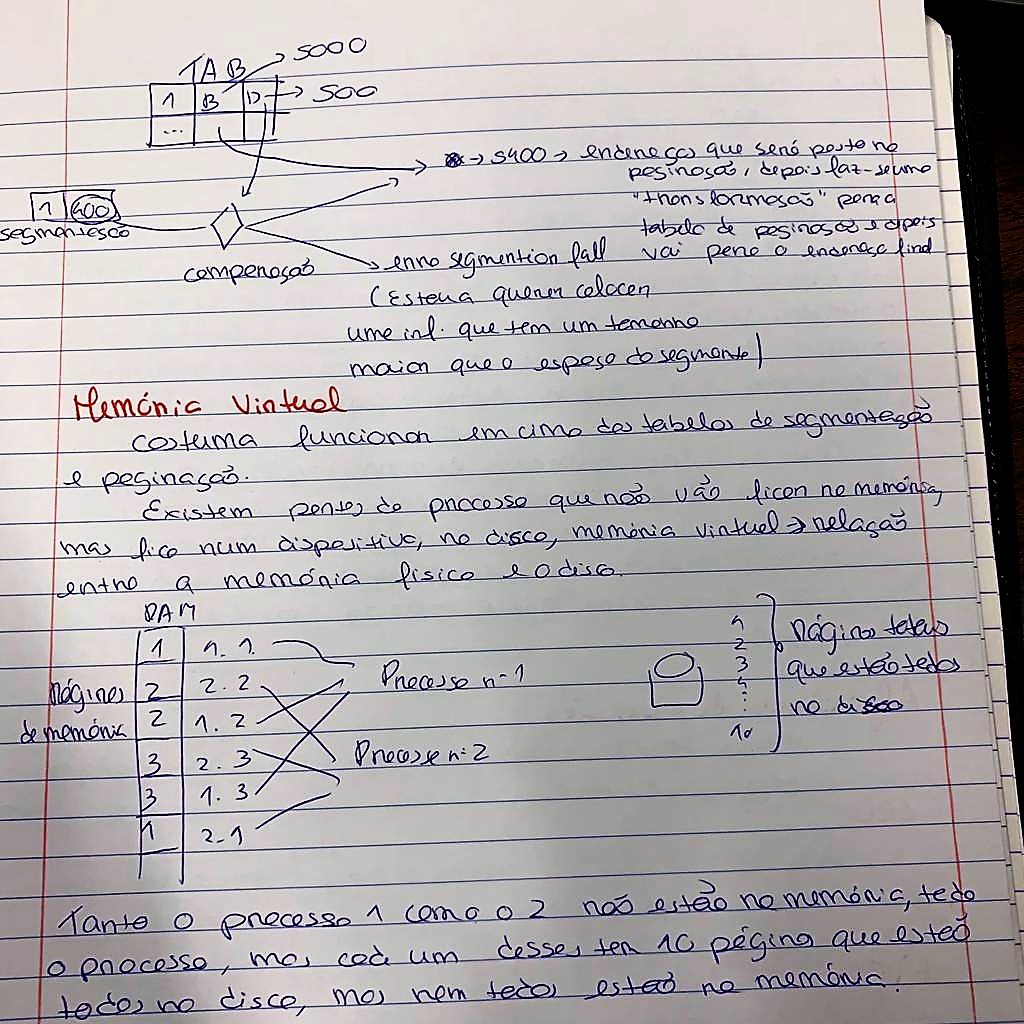 TAB
5000
1 B D 500
...
→ 5400 → endereço que será posto na
paginação, depois faz-se uma
1 400
"transformação" para a
segmentação
tabela de paginação e depois
comparação
erro segmention fall vai para o endereço final
(Estava querer colocar
uma inf. que tem um tamanho
maior que o espaço do segmento)
Memória Virtual
Costuma funcionar em cima das tabelas de segmentação
e paginação.
Existem partes do processo que não vão ficar na memória,
mas fica num dispositivo, no disco, memória virtual → relação
entre a memória física e o disco.
RAM
1 1.1
2 2.2
2 1.2
3 2.3
3 1.3
1 2-1
Páginas
de memória
Processo n=1
Processo n=2
1
2
3
4
⋮
10
Página totais
que estão todas
no disco
Tanto o processo 1 como o 2 não estão na memória, todo
o processo, mas cada um desses tem 10 página que estão
todas no disco, mas nem todas estão na memória.